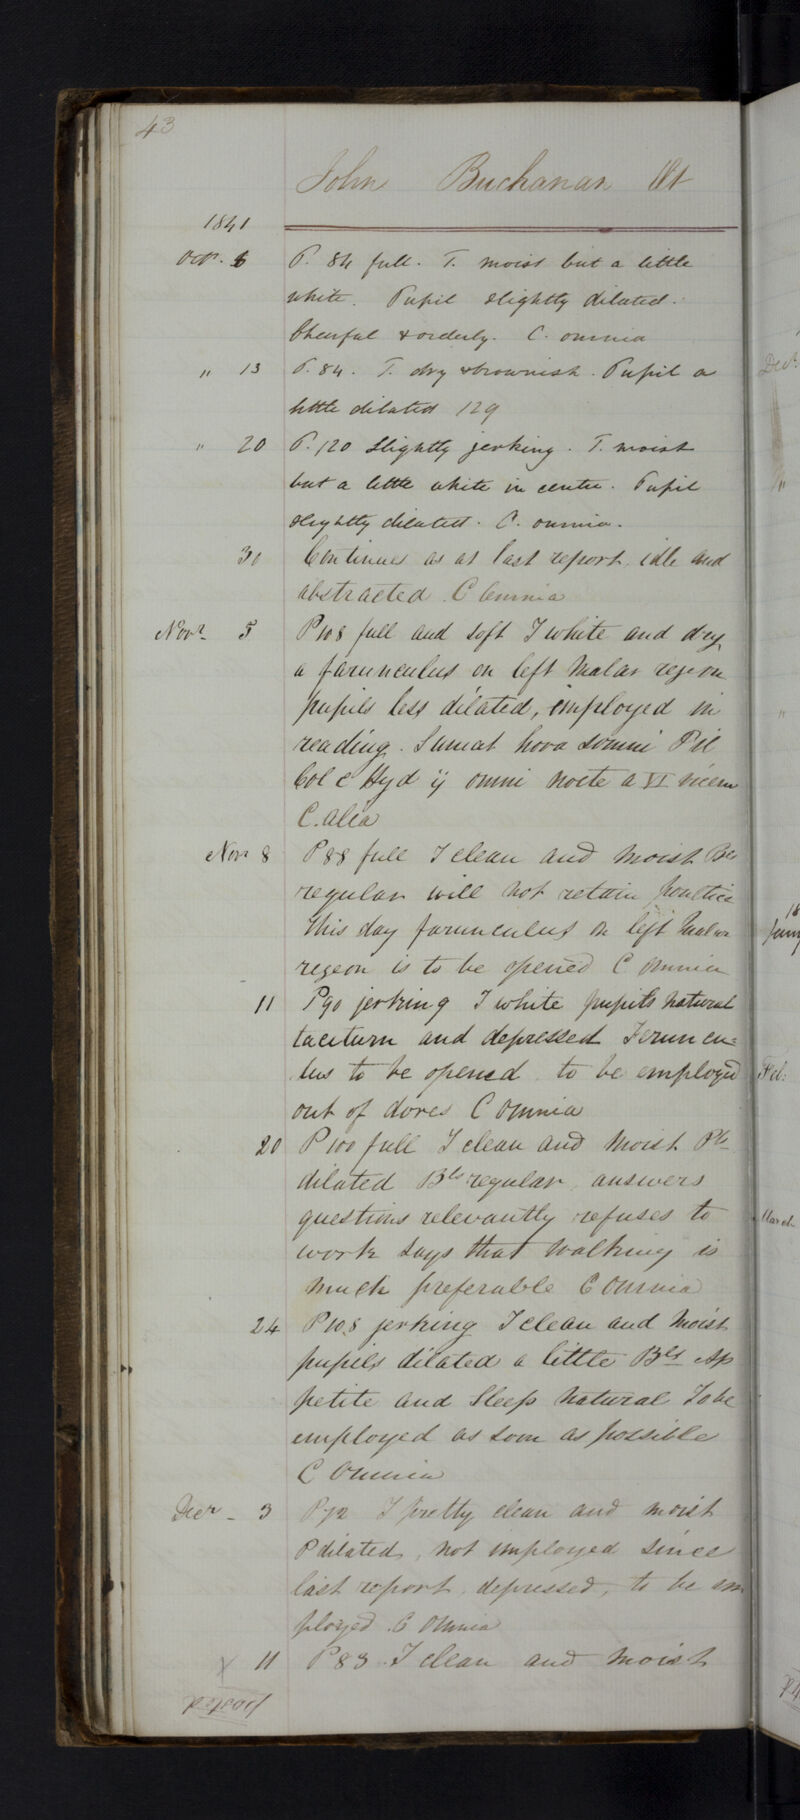 43
John Buchanan
1841
Octr. 6 P. 84 full. T. moist but a little
white. Pupil slightly dilated.
Chearful & orderly. C. omnia
" 13 P. 84. T. dry & brownish. Pupil a
little dilated 129
" 20 P. 120 slightly jerking. T. moist
but a little white in centre. Pupil
slightly dilated. C. omnia.
30 Continues as at last report, idle and
abstracted. C Omnia
Novr. 5 P 108 full and soft T white and dry,
a farunculus on left Malar region
pupils less dilated, employed in
reading. Sumat hora somni Pil
Col c Hyd ij omni nocte a VI vicem
C. alia
Novr 8 P 88 full T clean and moist Bls
regular will not retain poultice
this day farunculus on left Malar
regeon is to be opened C Omnia
11 P 90 jerking T white pupils natural
taciturn and depressed Feruncu=
lus to be opened to be employed
out of dores C Omnia
20 P 100 full T clean and moist Pls
dilated Bls regular, answers
questions relevantly refuses to
work says that walking is
much preferable C Omnia
24 P 108 jerking T clean and moist
pupils dilated a little Bls Ap
petite and Sleep natural To be
employed as soon as possible
C Omnia
Decr - 3 P 72 T pretty clean and moist
P dilated, not employed since
last report, depressed, to be em
ployed. C Omnia
X 11 P 83. T clean and moist
Decr.
"
"
Feb:
March